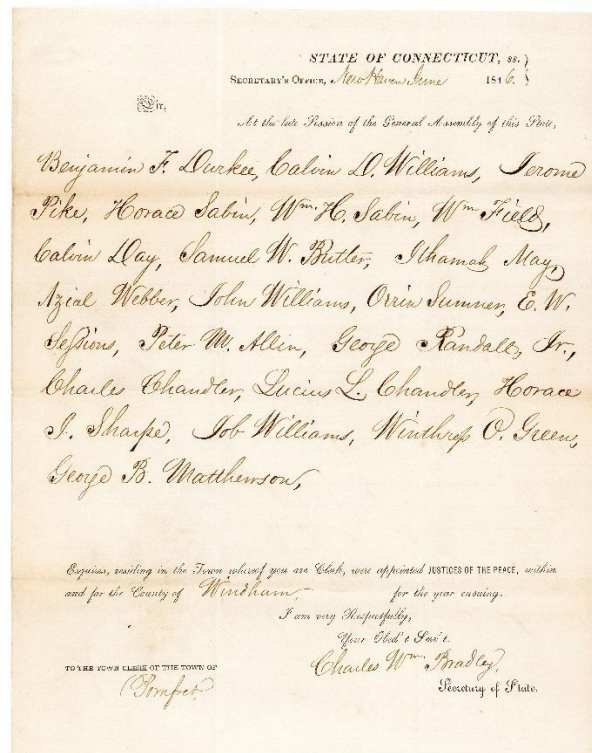 STATE OF CONNECTICUT, ss.
SECRETARY'S OFFICE, New Haven June 1846.
Sir,
At the late Session of the General Assembly of this State,
Benjamin F. Durkee, Calvin D. Williams, Jerome
Pike, Horace Sabin, Wm. H. Sabin, Wm Field,
Calvin Day, Samuel W. Butler, Ithamar May,
Azial Webber, John Williams, Orrin Sumner, E. W.
Sessions, Peter M. Allin, George Randall, Jr.,
Charles Chandler, Lucius L. Chandler, Horace
J. Sharpe, Job Williams, Winthrop O. Green,
George B. Matthewson,
Esquires, residing in the Town whereof you are Clerk, were appointed JUSTICES OF THE PEACE, within
and for the County of Windham, for the year ensuing.
I am very Respectfully,
Your Obed't Serv't.
Charles Wm. Bradley,
Secretary of State.
TO THE TOWN CLERK OF THE TOWN OF
Pomfret